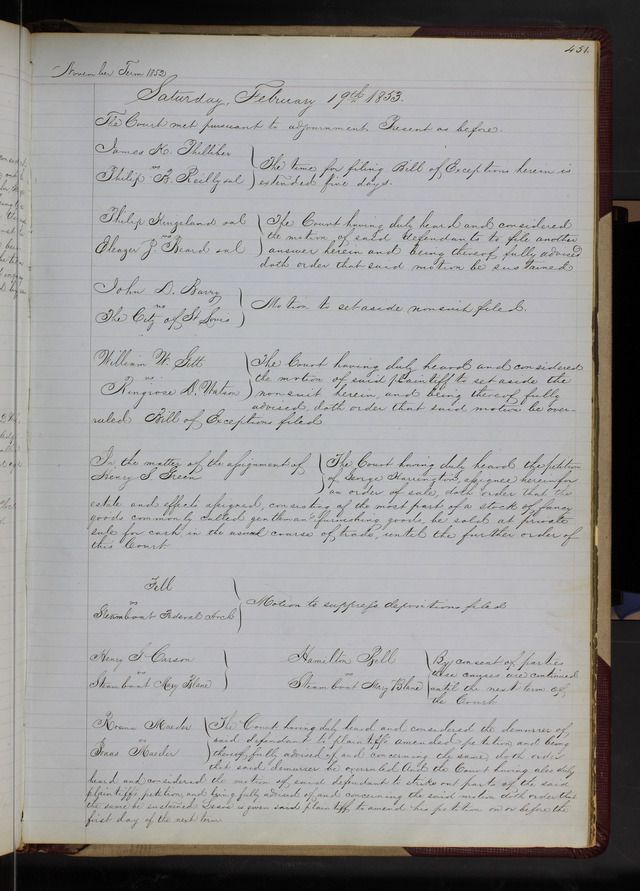 451.
November Term 1852
Saturday, February 19th 1853.
The Court met pursuant to adjournment. Present as before.
James K.
vs
Philip B. Reilly et al
The time for filing Bill of Exceptions herein is
extended five days.
Philip Kingsland et al
vs
Eleazer P. Beard et al
The Court having duly heard and considered
the motion of said defendants to file another
answer herein and being thereof fully advised
doth order that said motion be sustained
John D. Barry
vs
The City of St Louis
Motion to set aside nonsuit filed.
William W. Gett
vs
Ringrose D. Watson
The Court having duly heard and considered
the motion of said plaintiff to set aside the
nonsuit herein, and being thereof fully
advised doth order that said motion be over-
ruled Bill of Exceptions filed
In the matter of the assignment of
Henry S. Green
The Court having duly heard the petition
of George Harrington assignee herein for
an order of sale, doth order that the
estate and effects assigned, consisting of the most part of a stock of fancy
goods commonly called gentleman's furnishing goods be sold at private
sale for cash in the usual course of trade, until the further order of
this Court
Fell
vs
Steamboat Federal Arch
Motion to suppress depositions filed
Henry T. Carson
vs
Steamboat Mary Blane
Hamilton Bell
vs
Steamboat Mary Blane
By consent of parties
these causes are continued
until the next term of
the Court
Maeder
vs
Maeder
The Court having duly heard and considered the demurrer of
said defendant to plaintiffs amended petition, and being
thereof fully advised of and concerning the same, doth order
that said demurrer be overruled. And the Court having also duly
heard and considered the motion of said defendant to strike out parts of the said
plaintiffs petition, and being fully advised of and concerning the said motion doth order that
the same be sustained Leave is given said plaintiff to amend his petition on or before the
first day of the next term